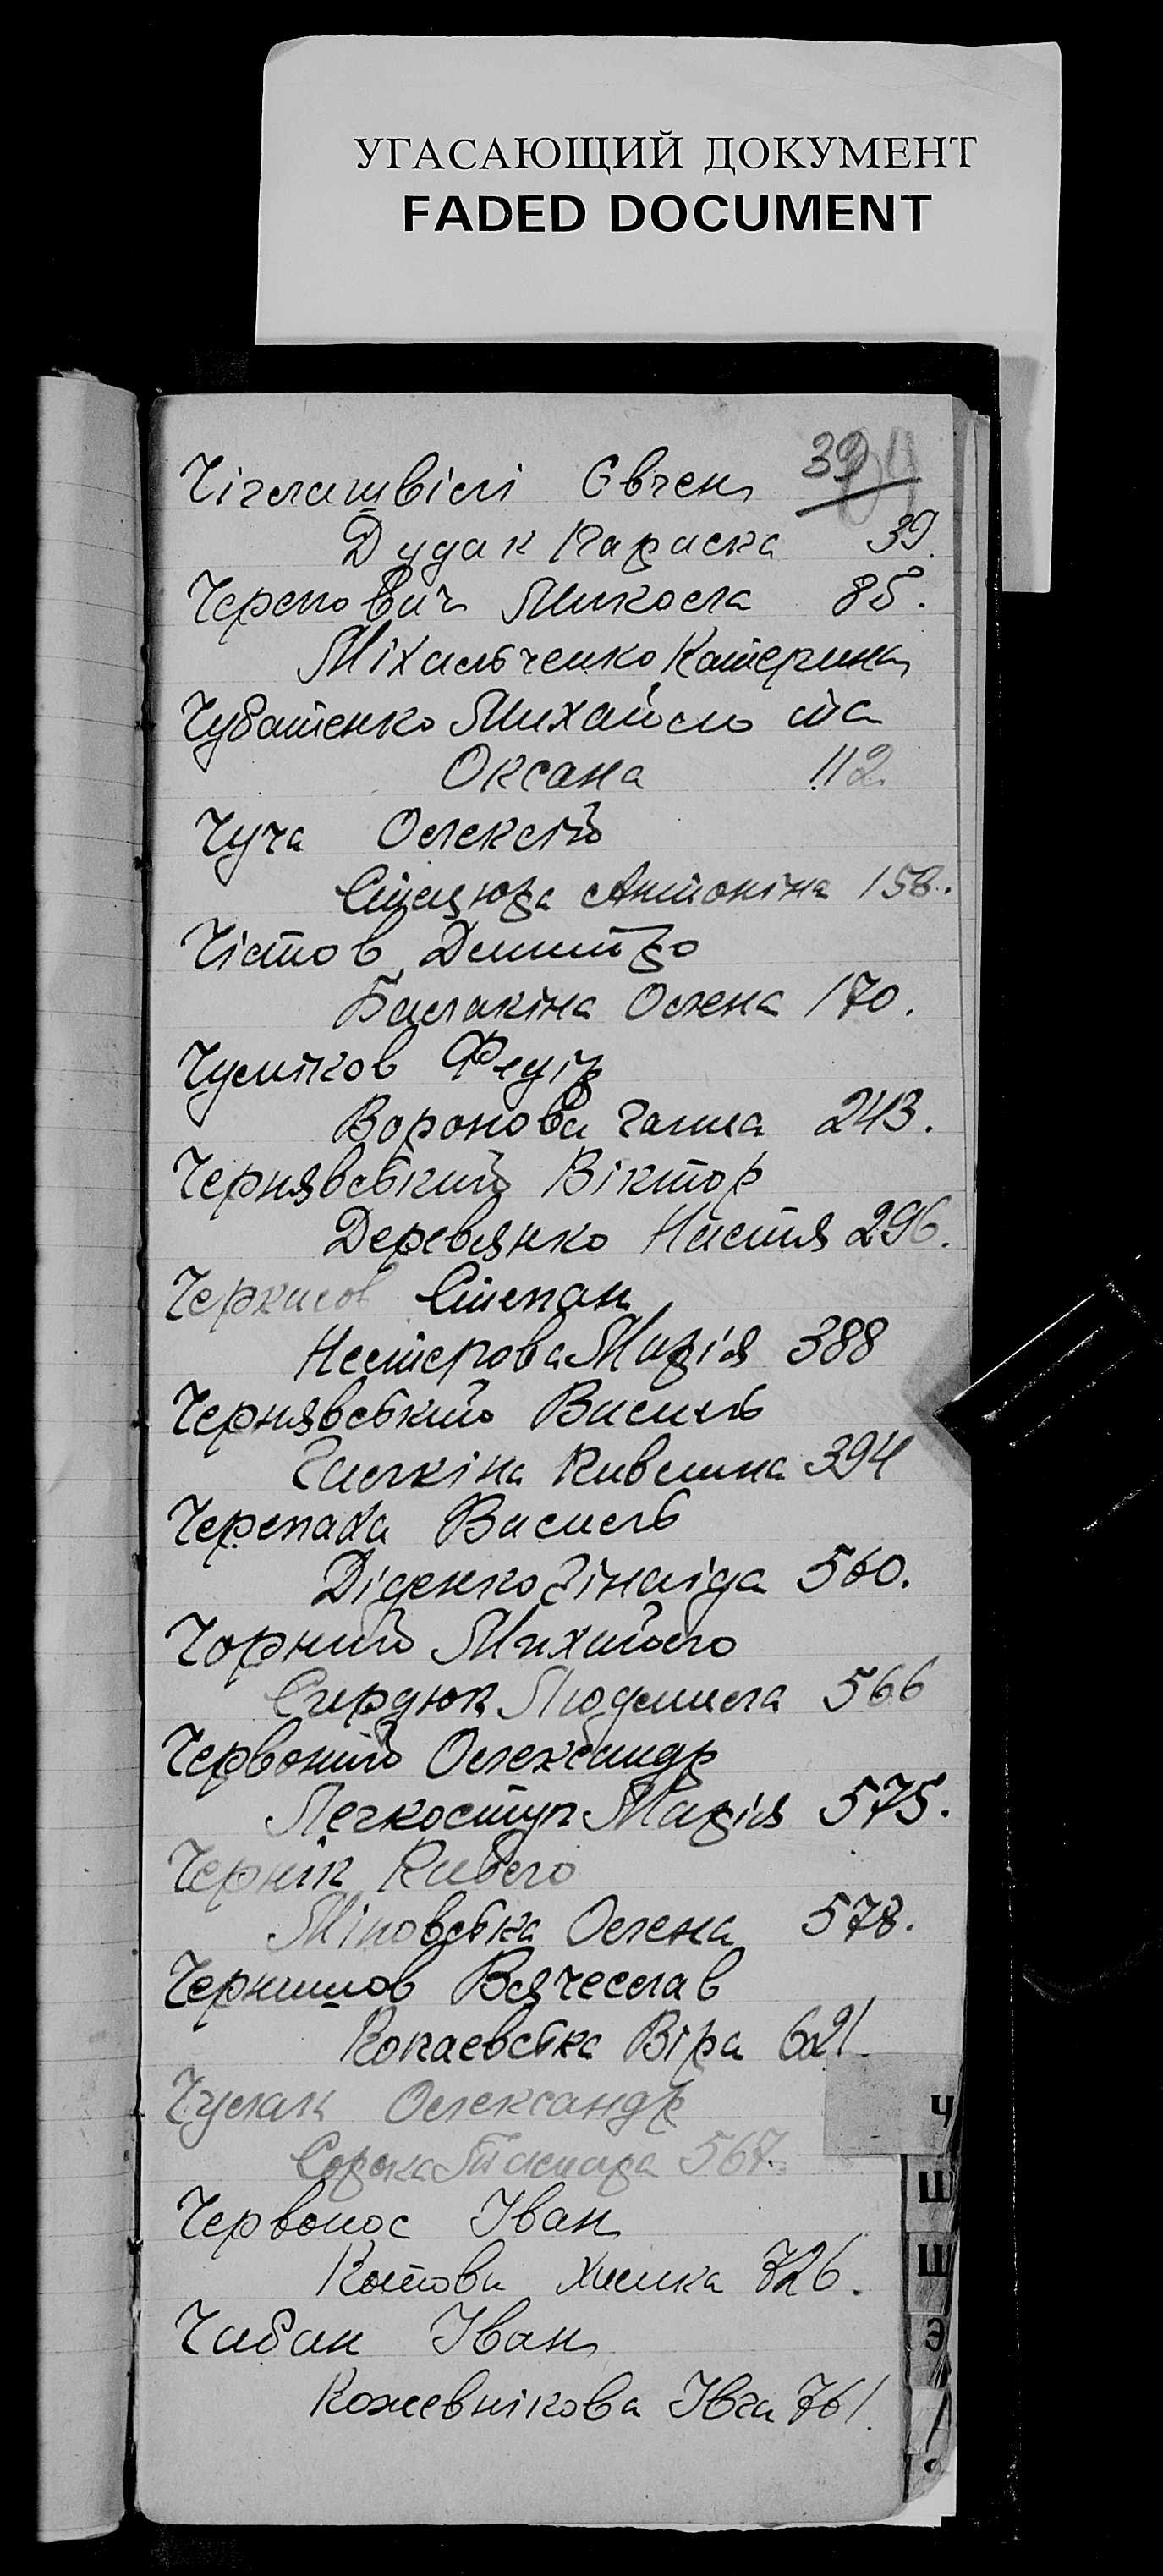 УГАСАЮЩИЙ ДОКУМЕНТ
FADED DOCUMENT
39
Чіглашвілі Євген
Дудак Параска 39.
Черпович Микола 85.
Міхальченко Катерина
Чубатенко Михайло та
Оксана 112.
Чуча Олексій
Стецюра Антоніна 158.
Чістов Дмитро
Балакіна Олена 170.
Чуліков Федір
Воронова Ганна 243.
Чернявський Віктор
Деревянко Настя 296.
Черкасов Степан
Нестерова Марія 388
Чернявський Василь
Галкіна Павлина 394
Черепаха Василь
Діденко Зінаіда 560.
Чорний Михайло
Сердюк Людмила 566
Червоній Олександр
Легкоступ Марія 575.
Чернік Павло
Міновська Олена 578.
Чернишов Вячеслав
Копаевська Віра 621.
Чулан Олександр
Сорока Тамара 567.
Червонос Іван
Котова Химка 726.
Чабан Іван
Кожевнікова Івга 761.
Ч
Ш
Щ
Э